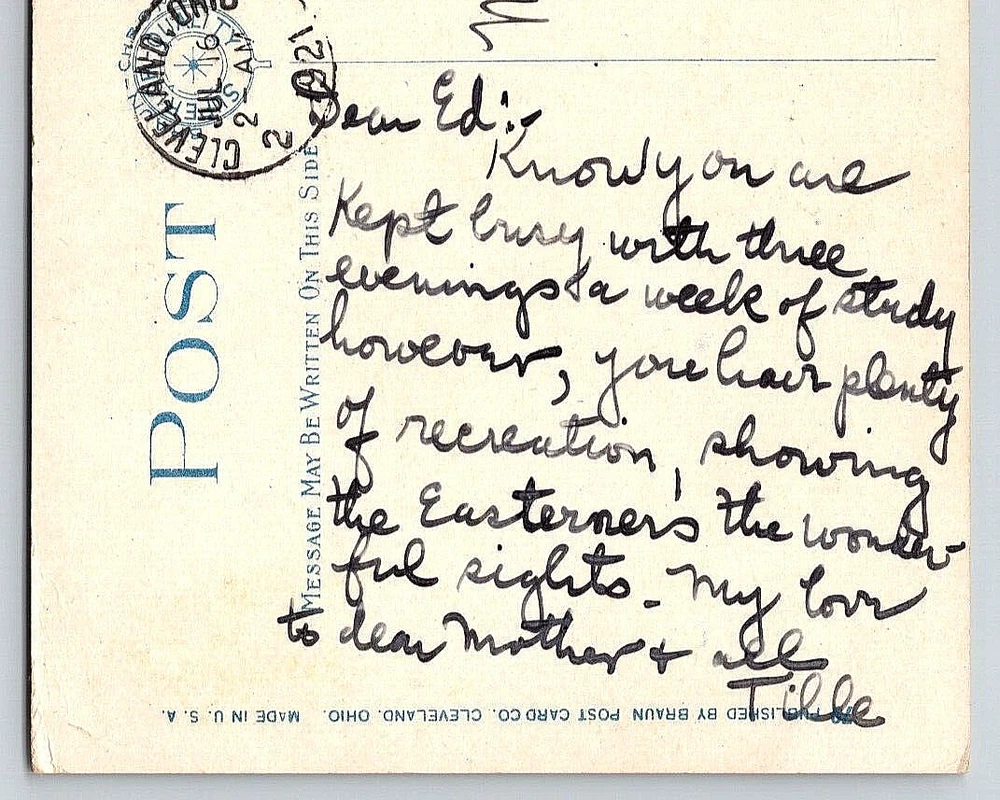 CLEVELAND, OHIO
JUL 16
2 AM
1921
2
POST
MESSAGE MAY BE WRITTEN ON THIS SIDE
Dear Ed:-
Know you are
Kept busy with three
evenings a week of study
however, you have plenty
of recreation, showing
the Easterners the wonder-
ful sights. My love
to dear Mother & all
Tillie
PUBLISHED BY BRAUN POST CARD CO. CLEVELAND. OHIO. MADE IN U. S. A.